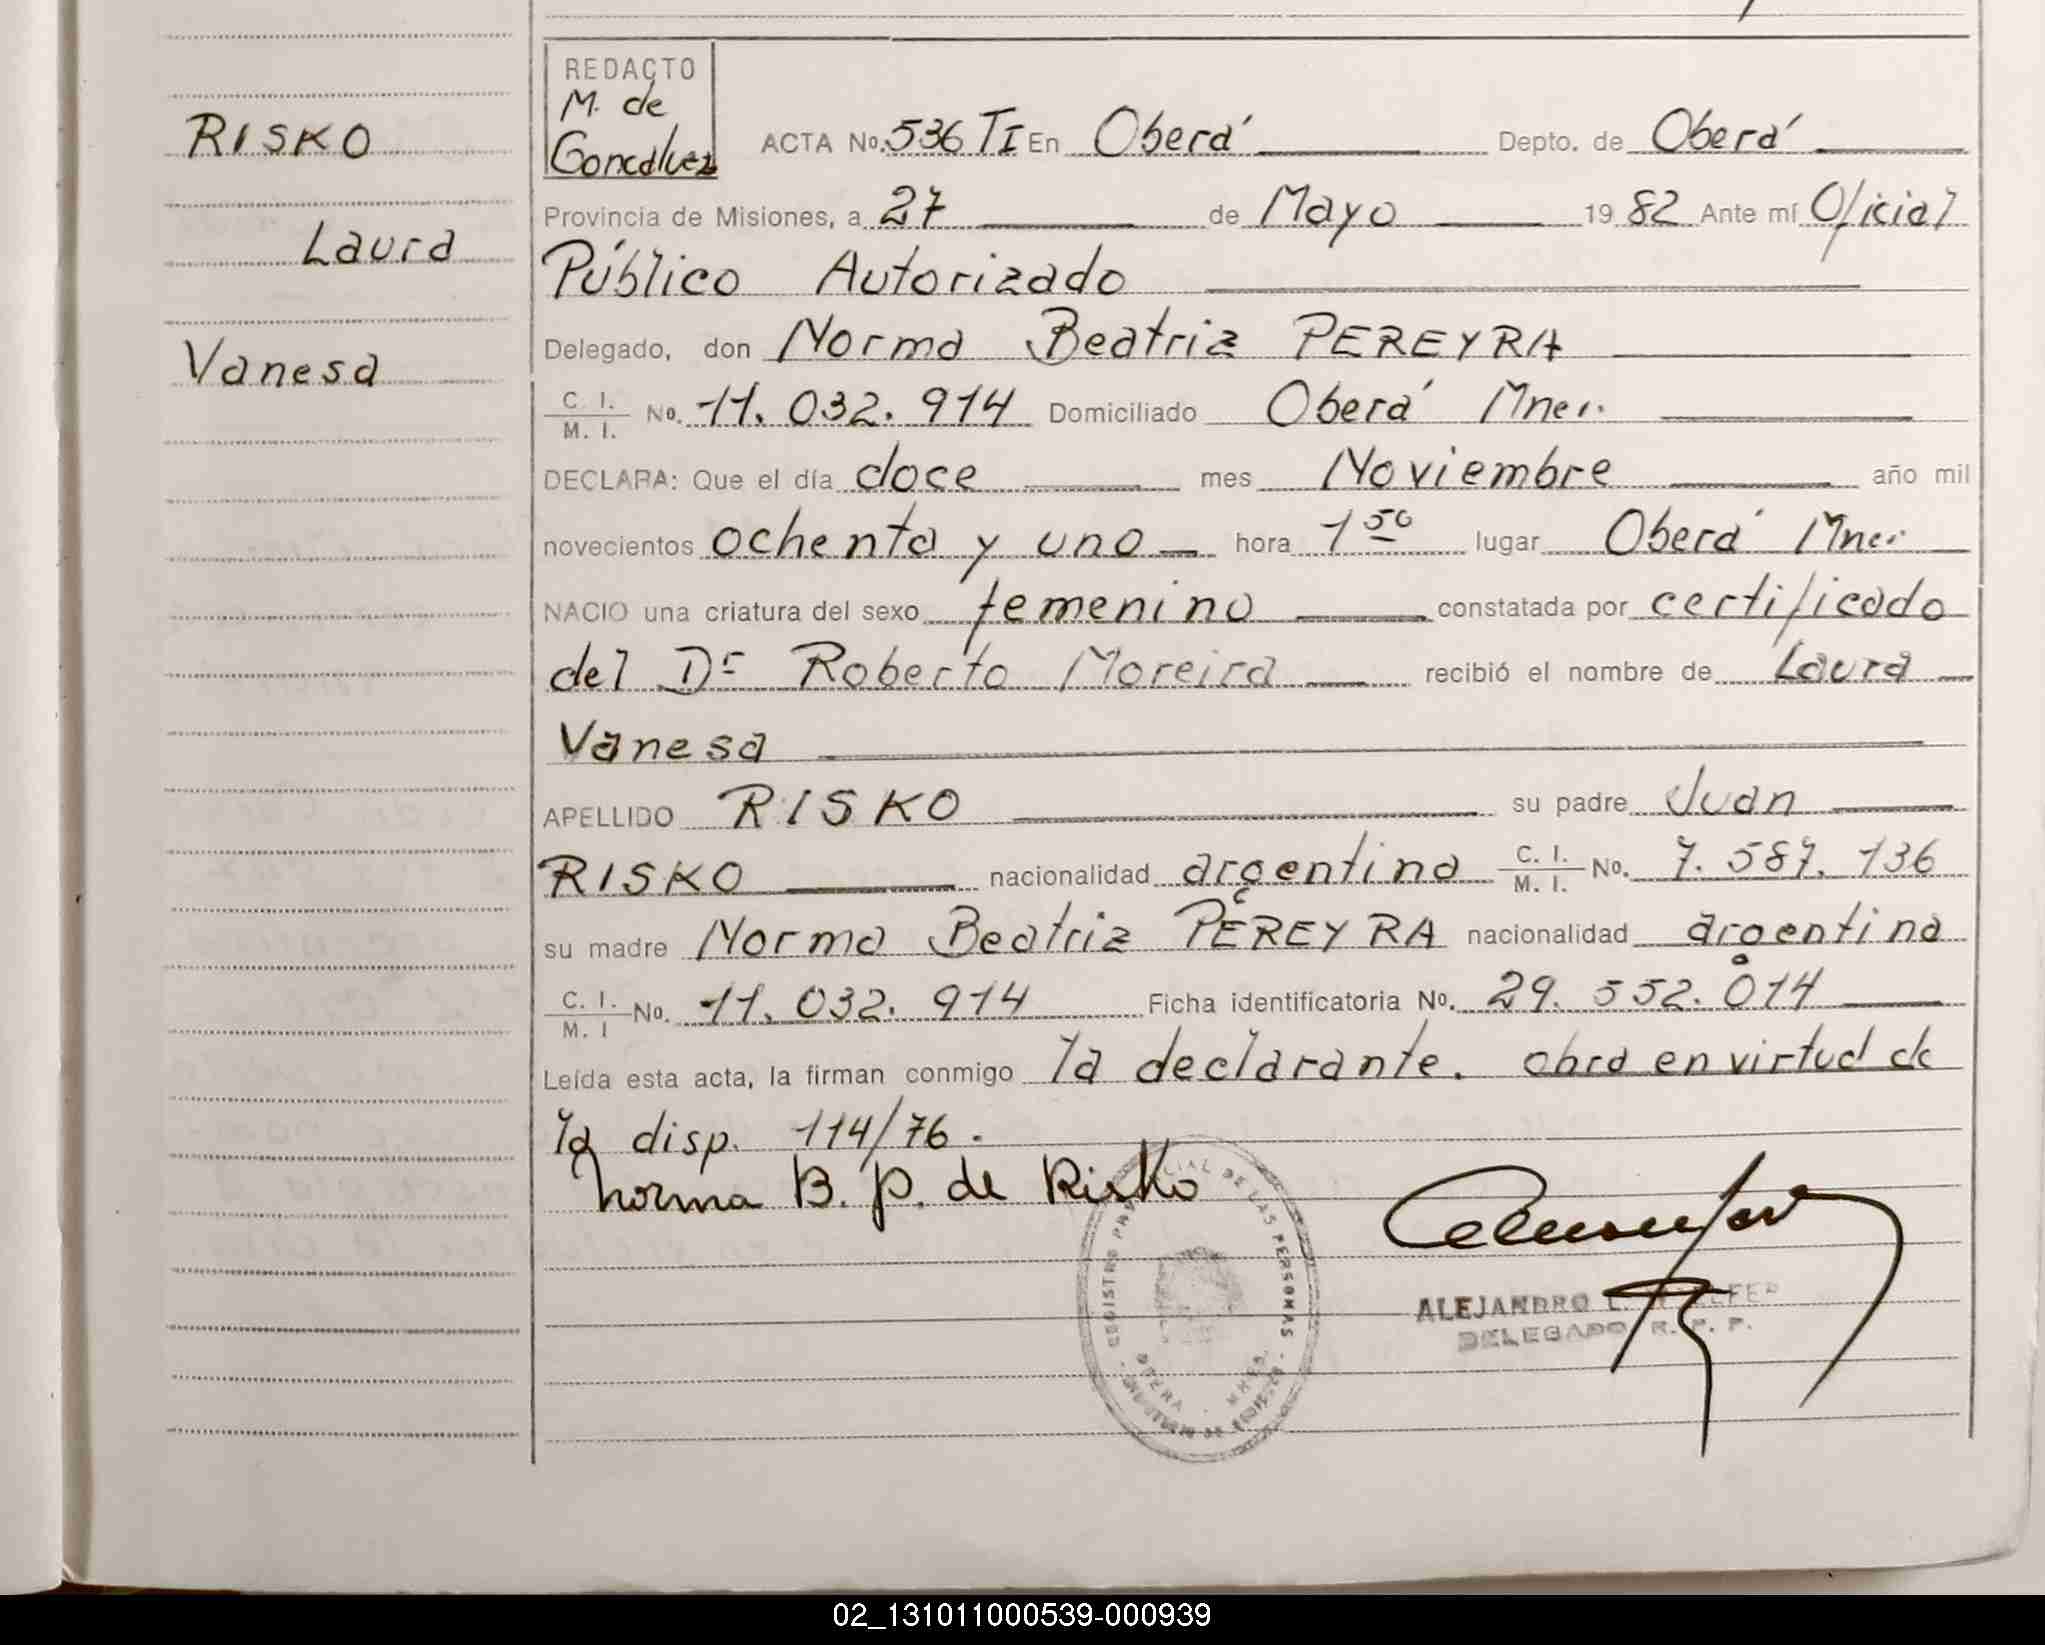 RISKO
Laura
Vanesa
REDACTO
M. de
Goncalvez
ACTA No. 536 TI En Oberá Depto. de Oberá
Provincia de Misiones, a 27 de Mayo 19 82 Ante mí Oficial
Público Autorizado
Delegado, don Norma Beatriz PEREYRA
C. I. / M. I. No. 11.032.914 Domiciliado Oberá Mnes.
DECLARA: Que el día doce mes Noviembre año mil
novecientos ochenta y uno hora 1 50 lugar Oberá Mnes
NACIO una criatura del sexo femenino constatada por certificado
del Dr Roberto Moreira recibió el nombre de Laura
Vanesa
APELLIDO RISKO su padre Juan
RISKO nacionalidad argentina C. I. / M. I. No. 7.587.136
su madre Norma Beatriz PEREYRA nacionalidad argentina
C. I. / M. I No. 11.032.914 Ficha identificatoria No. 29.552.014
Leída esta acta, la firman conmigo la declarante. obra en virtud de
la disp. 114/76.
Norma B. P. de Risko
DE LAS PERSONAS
ALEJANDRO
DELEGADO R. P. P.
02_131011000539-000939